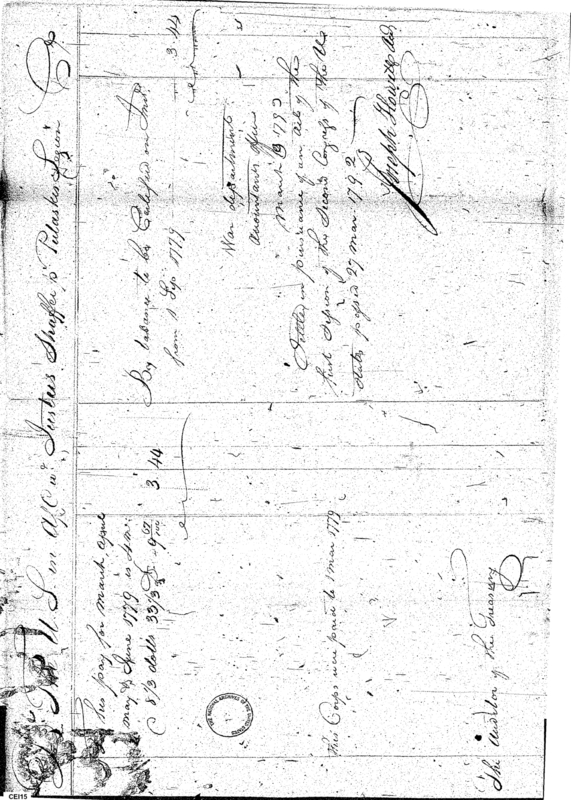 U S in a/c wt Justus Shaffer Pulaskis Legion
his pay for march april
may & June 1779 is 4 m:
@ 8 1/3 dolls 33 1/3 3.44
This Corps were paid to 1 mar 1779
The Auditor of the Treasury
By balance to be Certified on Int.
from 1 Sep 1779 3.44
War department
Accountants office
March 1793
Settled in pursuance of an act of the
first Session of the Second Congress of the U
States passed 27 mar 1792
Joseph Howell
THE NATIONAL ARCHIVES OF THE UNITED STATES
CEI15